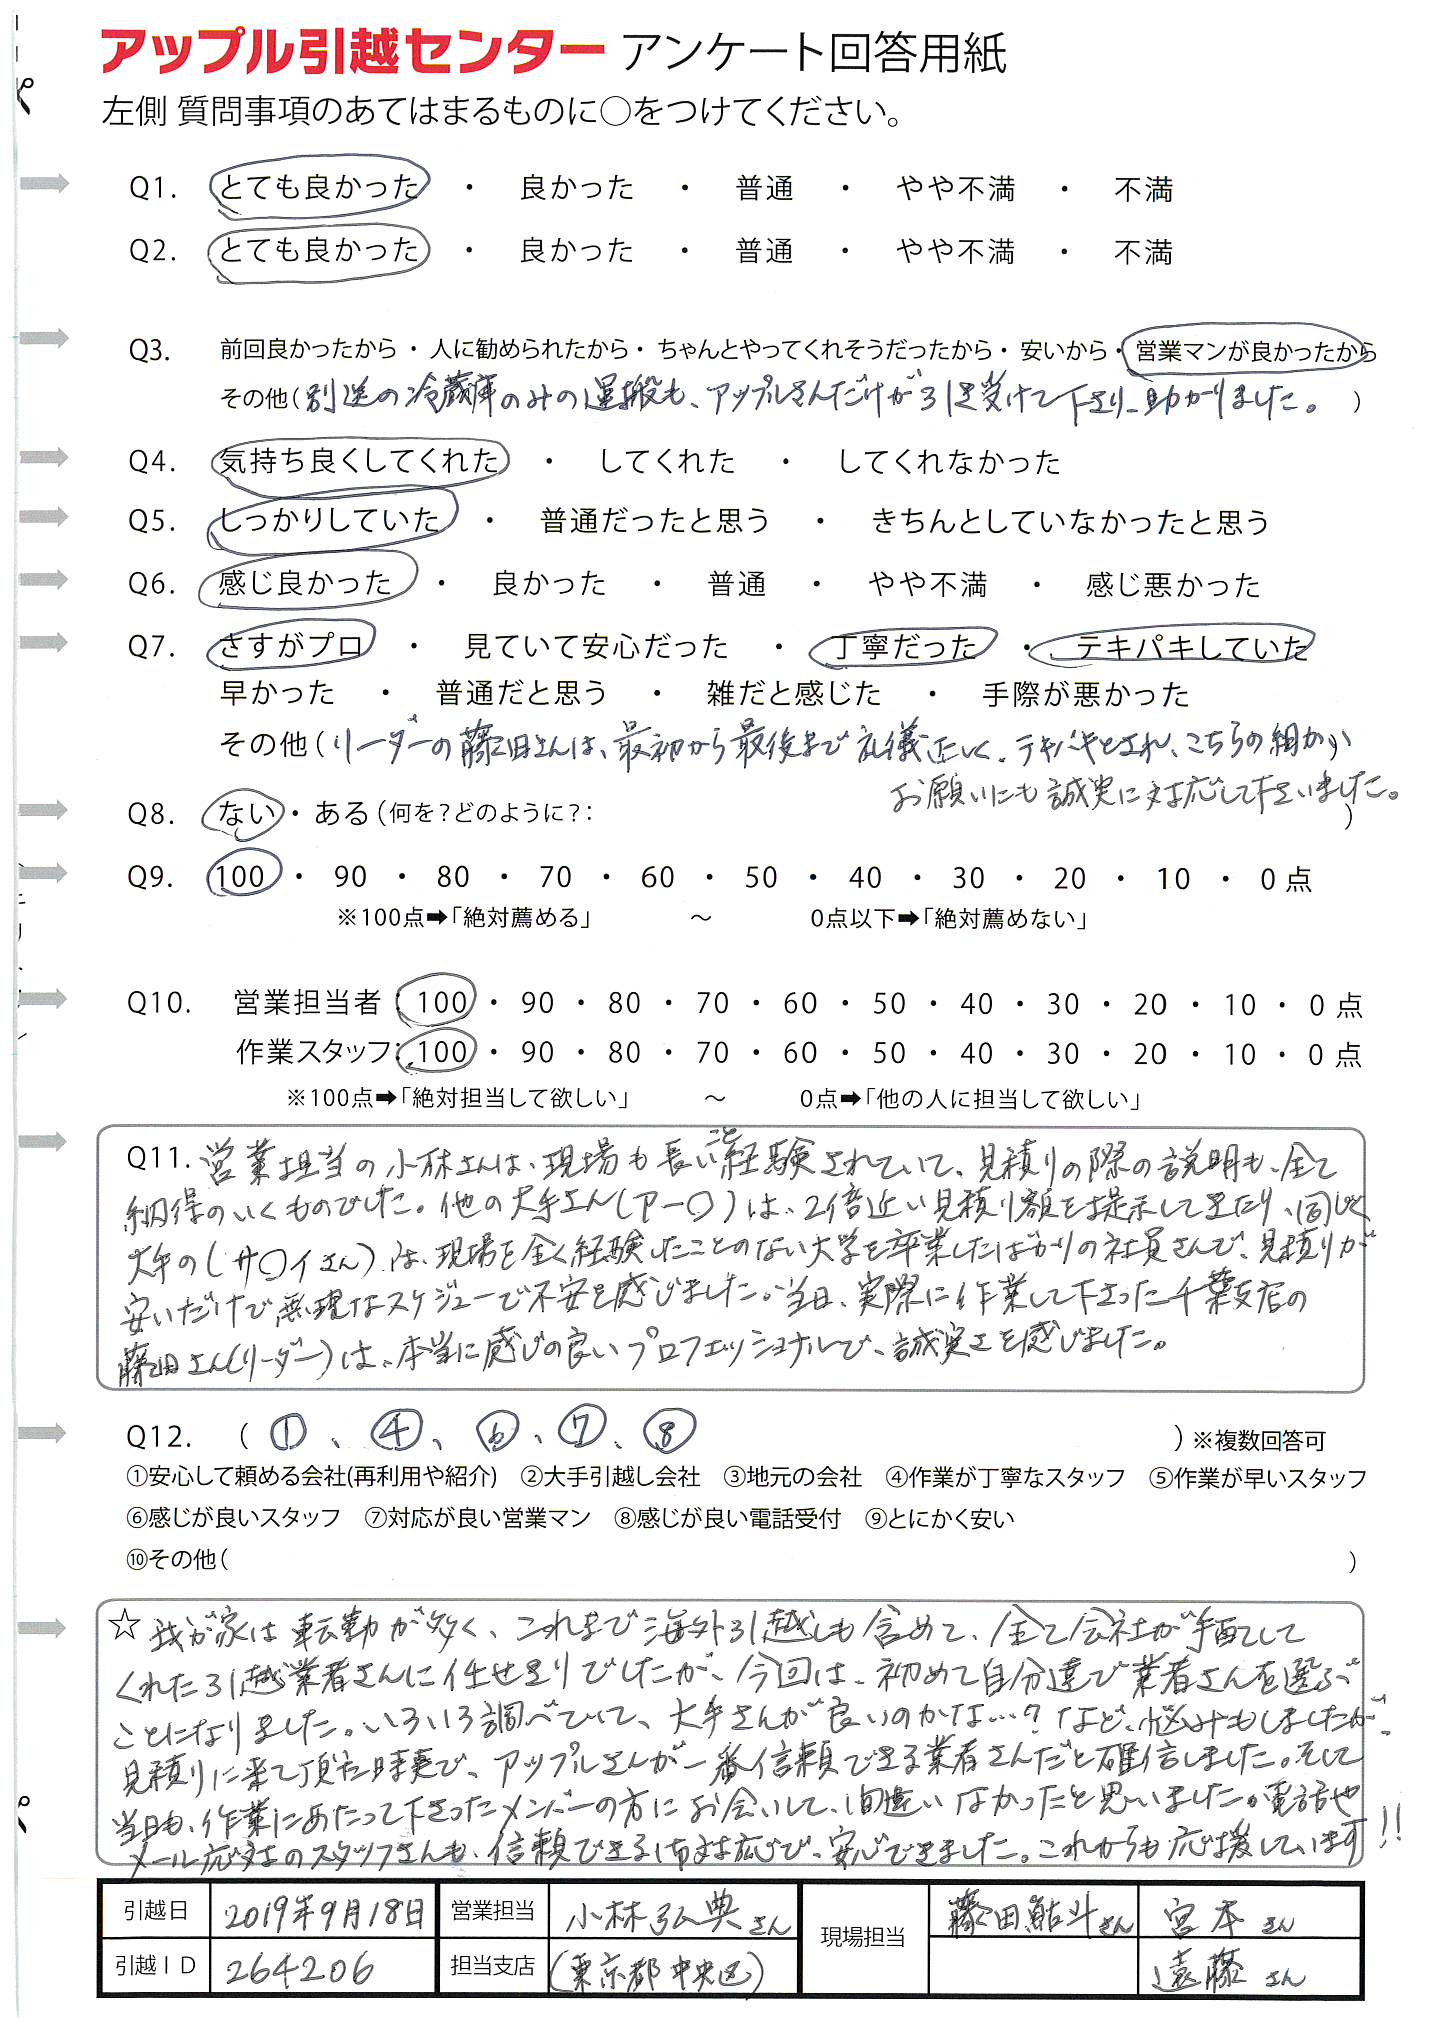 アップル引越センター アンケート回答用紙
左側 質問事項のあてはまるものに○をつけてください。
Q1. とても良かった ・ 良かった ・ 普通 ・ やや不満 ・ 不満
Q2. とても良かった ・ 良かった ・ 普通 ・ やや不満 ・ 不満
Q3. 前回良かったから ・ 人に勧められたから ・ ちゃんとやってくれそうだったから ・ 安いから ・ 営業マンが良かったから
その他 ( 別送の冷蔵庫のみの運搬も、アップルさんだけが引き受けて下さり、助かりました。 )
Q4. 気持ち良くしてくれた ・ してくれた ・ してくれなかった
Q5. しっかりしていた ・ 普通だったと思う ・ きちんとしていなかったと思う
Q6. 感じ良かった ・ 良かった ・ 普通 ・ やや不満 ・ 感じ悪かった
Q7. さすがプロ ・ 見ていて安心だった ・ 丁寧だった ・ テキパキしていた
早かった ・ 普通だと思う ・ 雑だと感じた ・ 手際が悪かった
その他 ( リーダーの藤田さんは、最初から最後まで礼儀正しく、テキパキとされ、こちらの細かい
お願いにも誠実に対応して下さいました。
Q8. ない ・ ある (何を?どのように?: )
Q9. 100 ・ 90 ・ 80 ・ 70 ・ 60 ・ 50 ・ 40 ・ 30 ・ 20 ・ 10 ・ 0 点
※100点➡「絶対薦める」 ～ 0点以下➡「絶対薦めない」
Q10. 営業担当者 : 100 ・ 90 ・ 80 ・ 70 ・ 60 ・ 50 ・ 40 ・ 30 ・ 20 ・ 10 ・ 0 点
作業スタッフ: 100 ・ 90 ・ 80 ・ 70 ・ 60 ・ 50 ・ 40 ・ 30 ・ 20 ・ 10 ・ 0 点
※100点➡「絶対担当して欲しい」 ～ 0点➡「他の人に担当して欲しい」
Q11. 営業担当の小林さんは、現場も長いこと経験されていて、見積りの際の説明も、全て
納得のいくものでした。他の大手さん(アー○)は、2倍近い見積り額を提示して来たり、同じく
大手の(サ○イさん)は、現場を全く経験したことのない大学を卒業したばかりの社員さんで、見積りが
安いだけで無理なスケジュールで不安を感じました。当日、実際に作業して下さった千葉支店の
藤田さん(リーダー)は、本当に感じの良いプロフェッショナルで、誠実さを感じました。
Q12. ( ①、④、⑥、⑦、⑧ ) ※複数回答可
①安心して頼める会社(再利用や紹介) ②大手引越し会社 ③地元の会社 ④作業が丁寧なスタッフ ⑤作業が早いスタッフ
⑥感じが良いスタッフ ⑦対応が良い営業マン ⑧感じが良い電話受付 ⑨とにかく安い
⑩その他 ( )
☆ 我が家は転勤が多く、これまで海外引越しも含めて、全て会社が手配して
くれた引越業者さんに任せきりでしたが、今回は、初めて自分達で業者さんを選ぶ
ことになりました。いろいろ調べていて、大手さんが良いのかな…?など、悩みもしましたが、
見積りに来て頂た時点で、アップルさんが一番信頼できる業者さんだと確信しました。そして
当日も、作業にあたって下さったメンバーの方にお会いして、間違いなかったと思いました。電話や
メール応対のスタッフさんも、信頼できる御対応で、安心できました。これからも応援しています!!
引越日 2019年9月18日 営業担当 小林弘典さん 現場担当 藤田鮎斗さん 宮本さん
引越ID 264206 担当支店 (東京都中央区) 遠藤さん